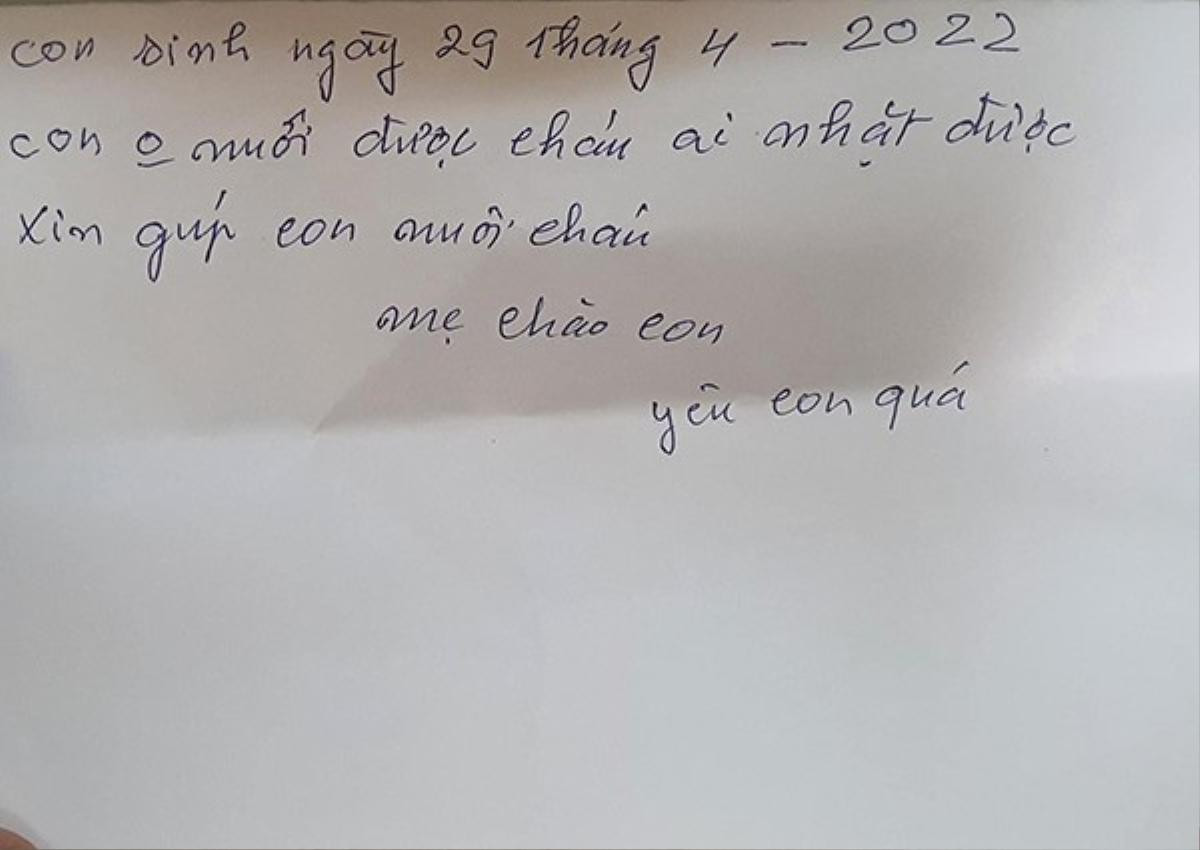 con sinh ngày 29 tháng 4 - 2022
con o nuối được cháu ai nhặt được
xin gúp con nuôi cháu
mẹ chào con
yêu con quá